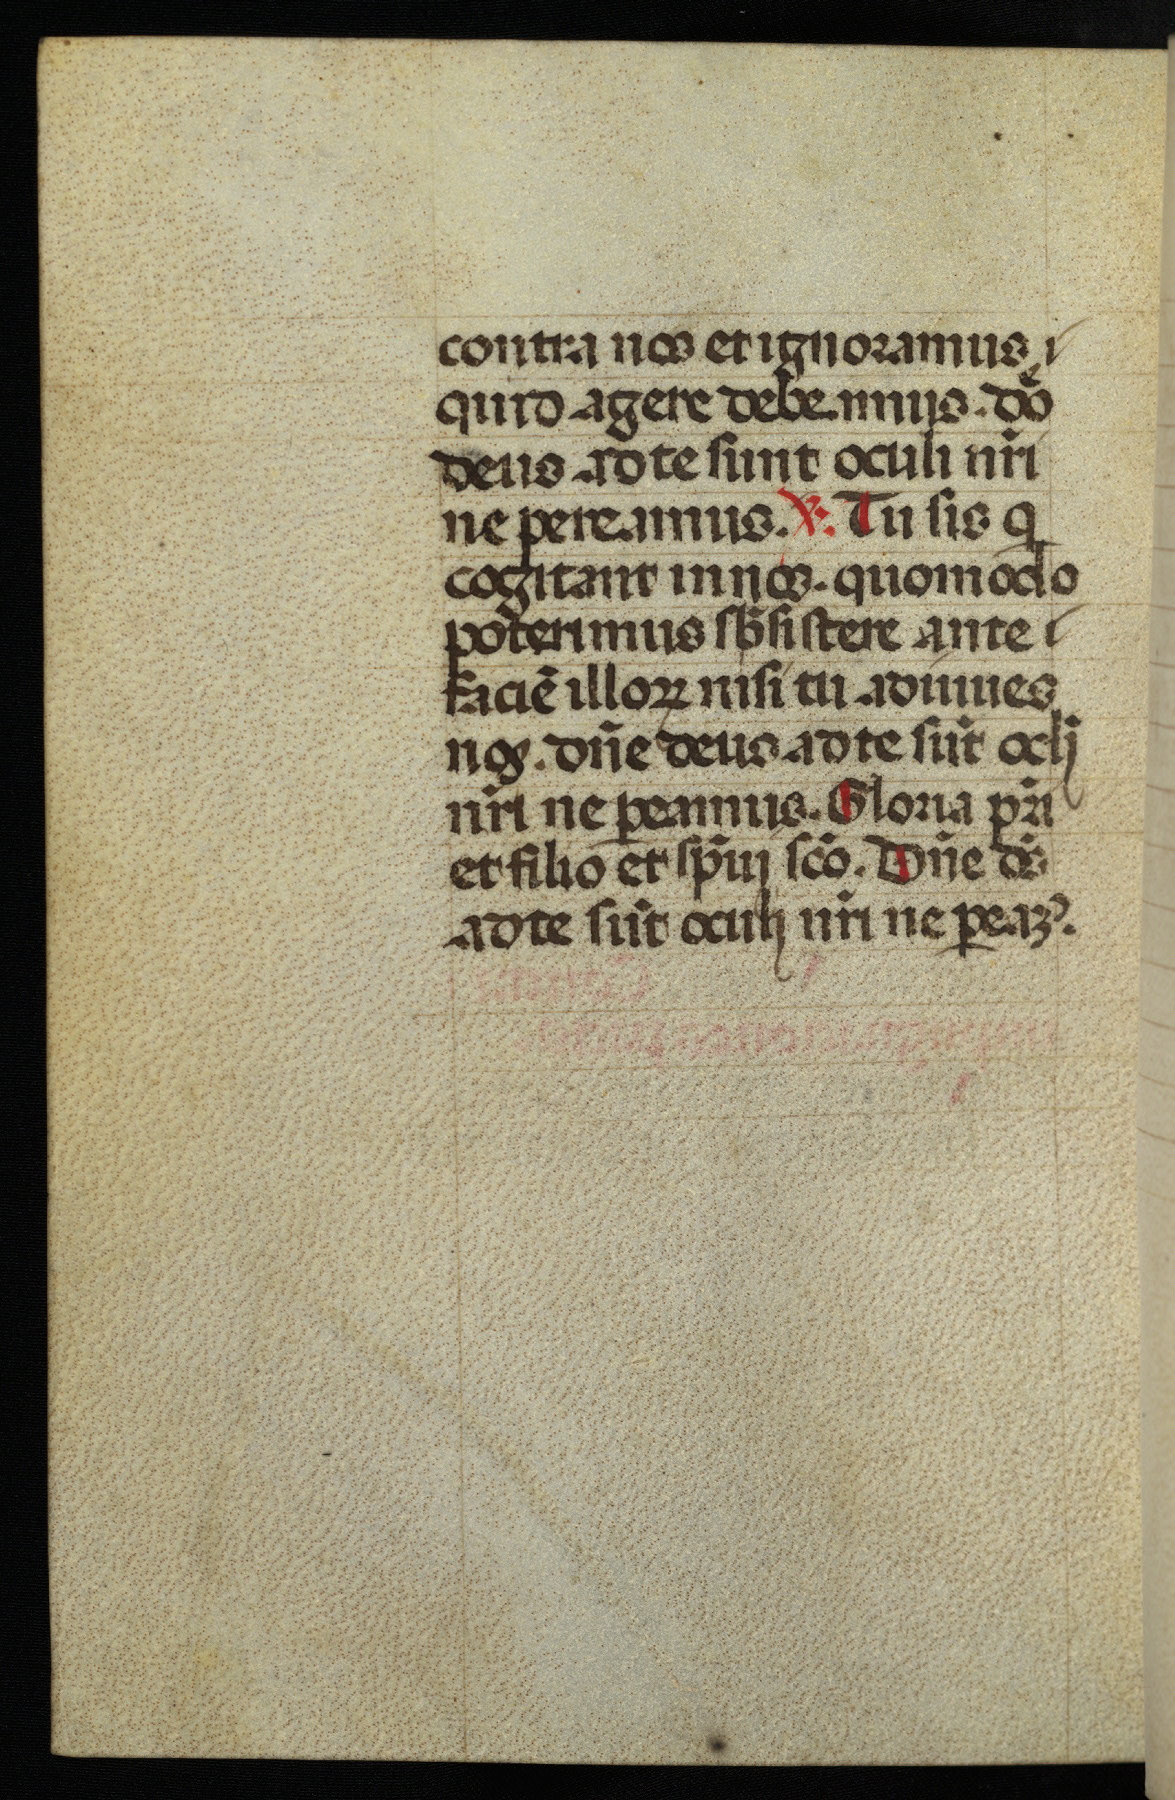 contra nos et ignoramus
quid agere debemus. dō
deus ad te sunt oculi nr̄i
ne pereamus. ℣. Tu sis q
cogitant in nos. quomodo
poterimus sb̄sistere ante
faciē illoꝝ nisi tu adiuues
nos. dn̄e deus ad te sūt oclī
nr̄i ne ꝑeamus. Gloria pr̄i
et filio et sp̄iuj sc̄o. Dn̄e ds̄
ad te sūt oculj nr̄i ne ꝑeaꝫ.